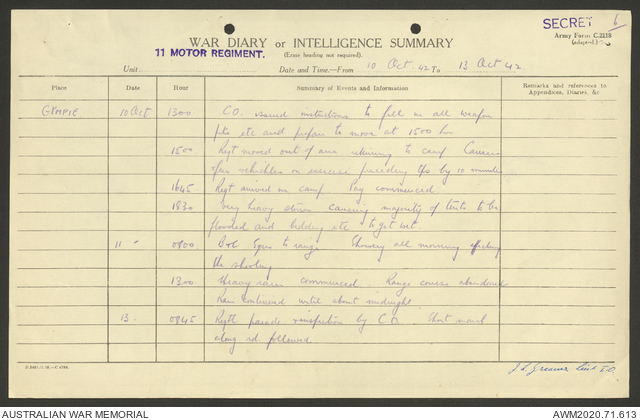 SECRET 6
Army Form C.2118
(adapted.)
WAR DIARY or INTELLIGENCE SUMMARY
(Erase heading not required).
11 MOTOR REGIMENT.
Unit
Date and Time—From 10 Oct 42 To 13 Oct 42
Place Date Hour Summary of Events and Information Remarks and references to Appendices, Diaries, &c
GYMPIE 10 Oct 1300 C.O. issued instructions to fill in all weapon
pits etc and prepare to move at 1500 hrs
1500 Regt moved out of area returning to camp
vehicles on exercise preceding by 10 minutes
1645 Regt arrived in camp Pay commenced
1830 Very heavy storm causing majority of tents to be
flooded and bedding etc to get wet
11 " 0800 Sqns to range Showery all morning
the shooting
1300 Heavy rain commenced Range course abandoned
Rain continued until about midnight
13 0845 Regtl parade inspection by C.O. Short march
along rd followed
Lieut I.O.
AUSTRALIAN WAR MEMORIAL
AWM2020.71.613